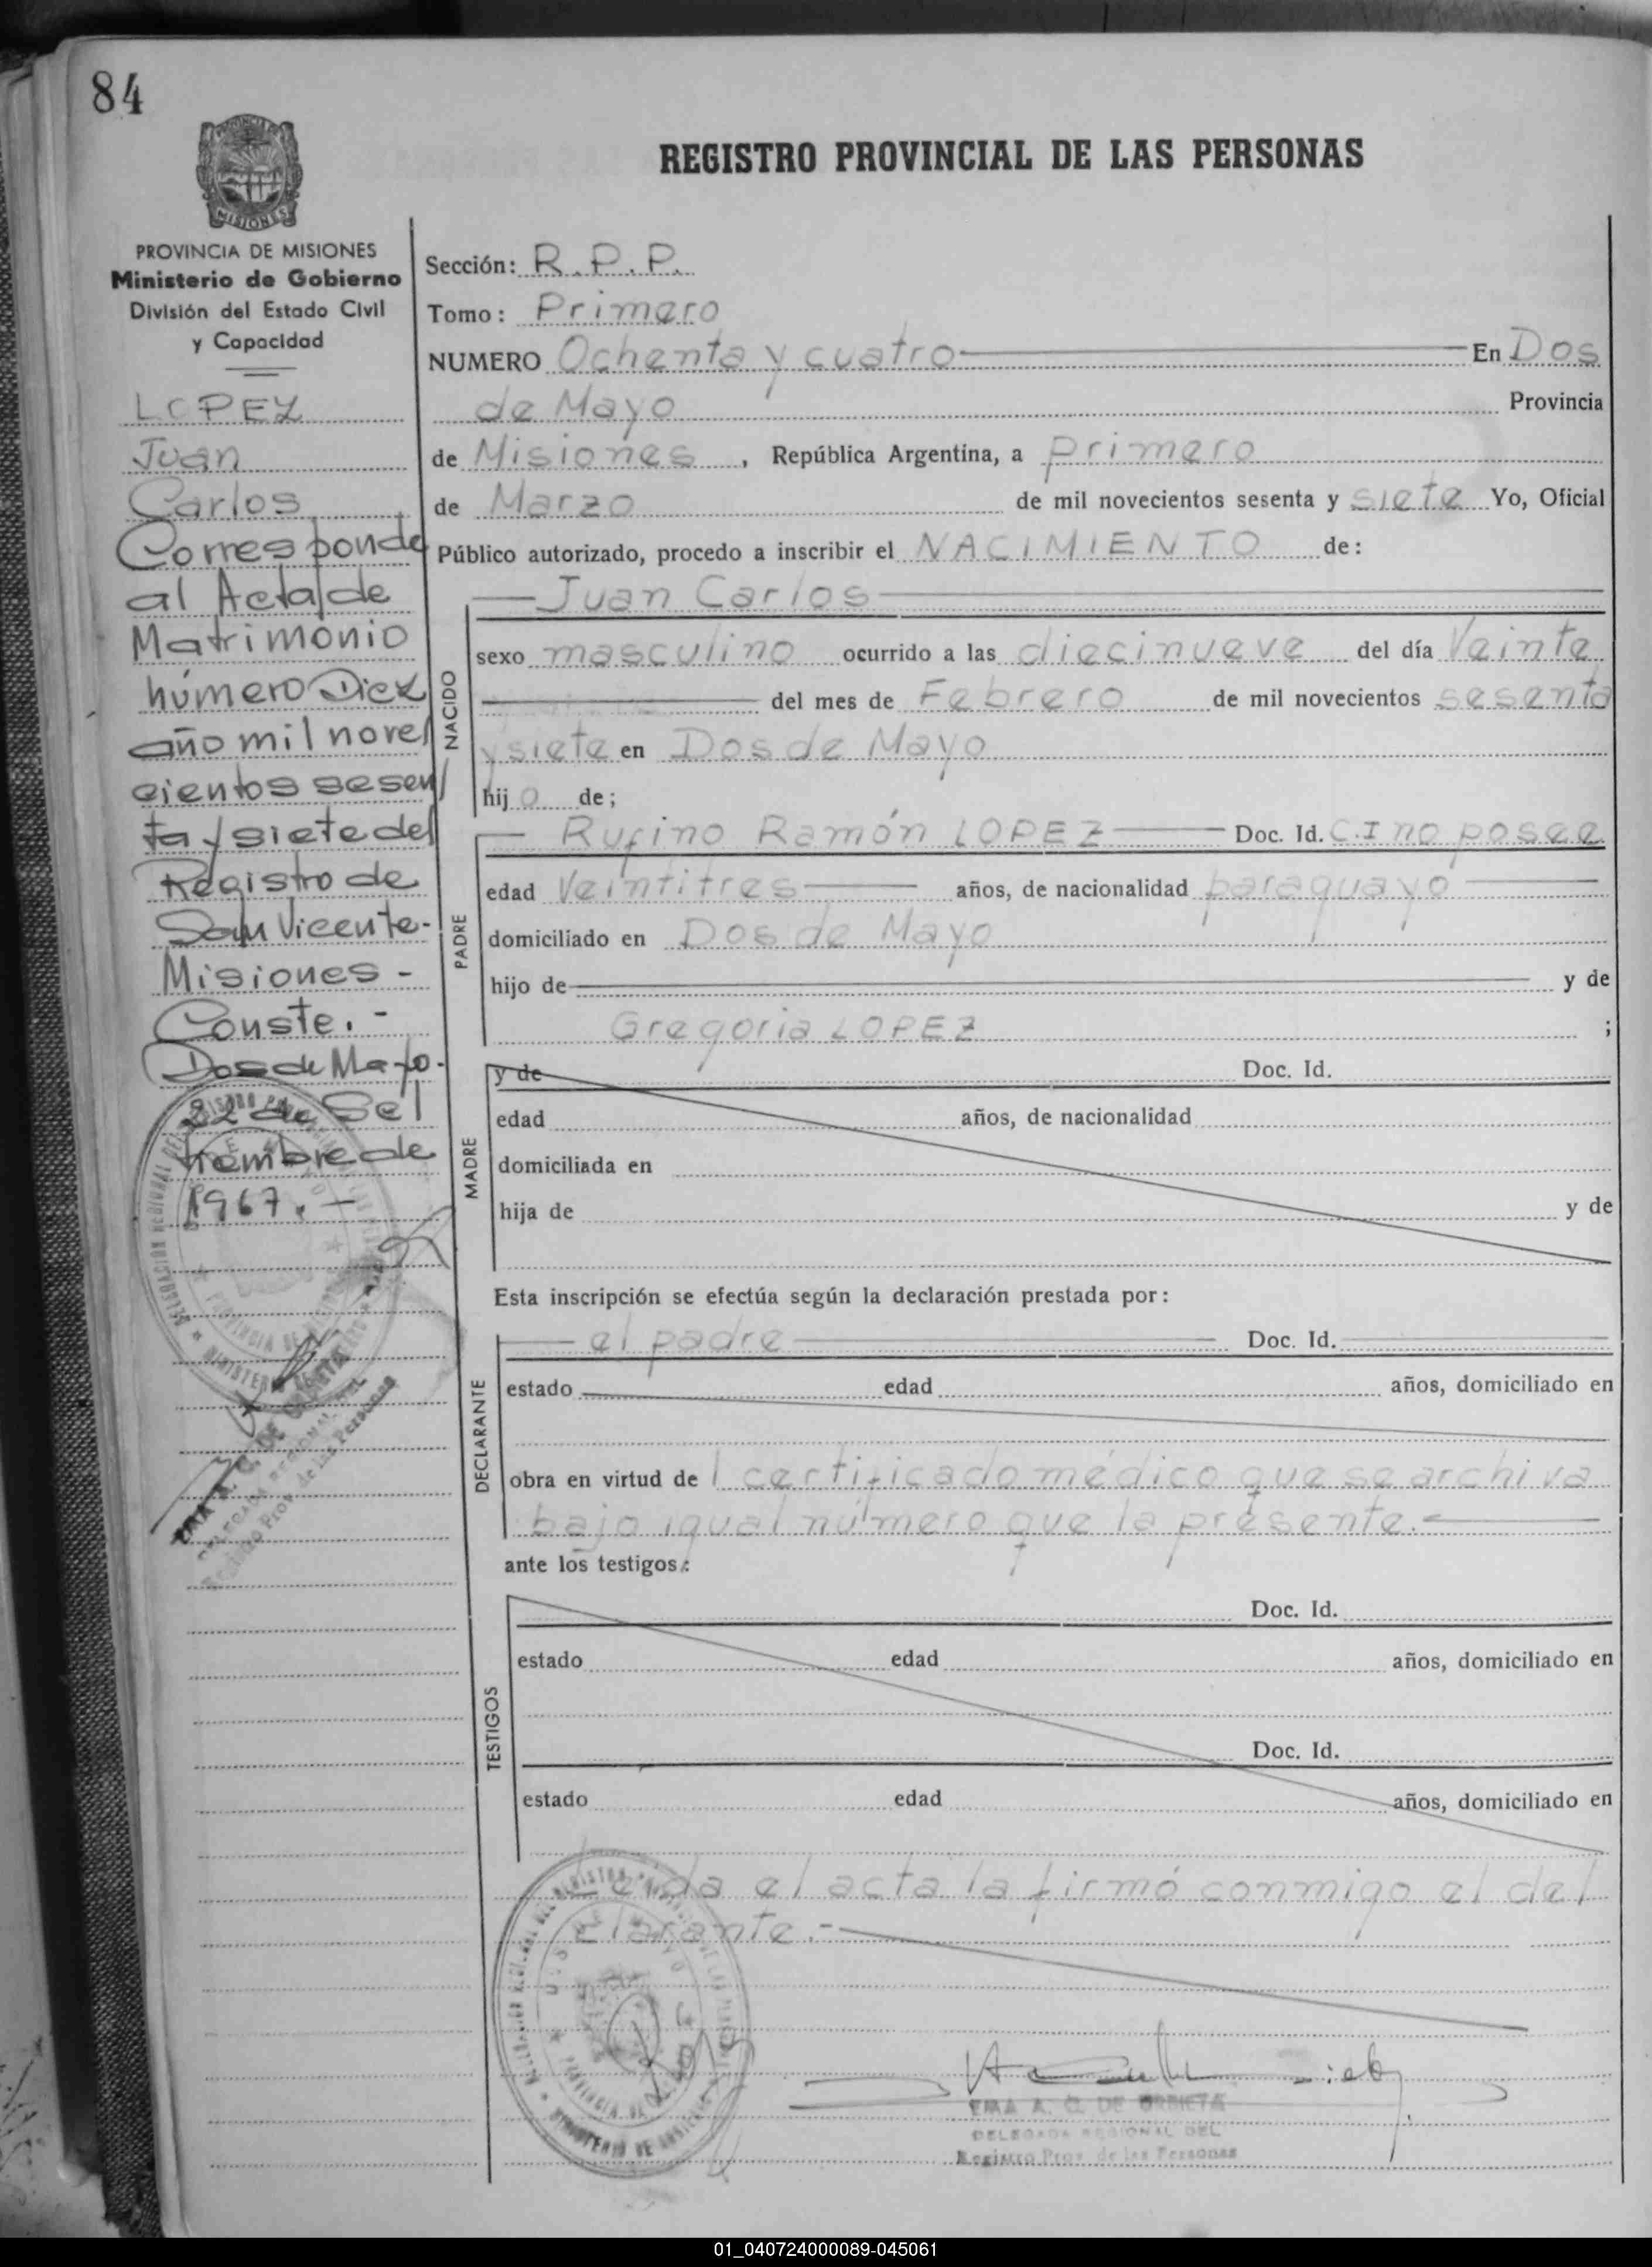 84
PROVINCIA DE
MISIONES
REGISTRO PROVINCIAL DE LAS PERSONAS
PROVINCIA DE MISIONES
Ministerio de Gobierno
División del Estado Civil
y Capacidad
LOPEZ
Juan
Carlos
Corresponde
al Acta de
Matrimonio
número Diez
año mil nove
cientos sesen
ta y siete del
Registro de
San Vicente-
Misiones -
Conste. -
Dos de Mayo-
22 de Se
tiembre de
1967. -
Sección: R.P.P.
Tomo: Primero
NUMERO Ochenta y cuatro En Dos
de Mayo Provincia
de Misiones, República Argentina, a primero
de Marzo de mil novecientos sesenta y siete Yo, Oficial
Público autorizado, procedo a inscribir el NACIMIENTO de:
Juan Carlos
NACIDO
sexo masculino ocurrido a las diecinueve del día Veinte
del mes de Febrero de mil novecientos sesenta
y siete en Dos de Mayo
hijo de;
PADRE
Rufino Ramón LOPEZ Doc. Id. C.I no posee
edad Veintitres años, de nacionalidad paraguayo
domiciliado en Dos de Mayo
hijo de y de
Gregoria LOPEZ ;
MADRE
y de Doc. Id.
edad años, de nacionalidad
domiciliada en
hija de y de
Esta inscripción se efectúa según la declaración prestada por:
DECLARANTE
el padre Doc. Id.
estado edad años, domiciliado en
obra en virtud de l certificado médico que se archiva
bajo igual número que la presente.-
ante los testigos:
TESTIGOS
Doc. Id.
estado edad años, domiciliado en
Doc. Id.
estado edad años, domiciliado en
Leida el acta la firmó conmigo el de
clarante.-
EMA A. C. DE URBIETA
DELEGADA REGIONAL DEL
Registro Prov. de las Personas
01_040724000089-045061